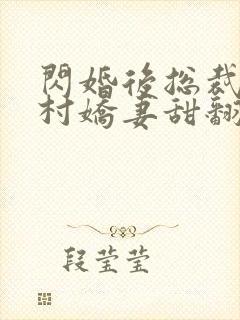 閃婚後總裁
村嬌妻甜翻
段莹莹